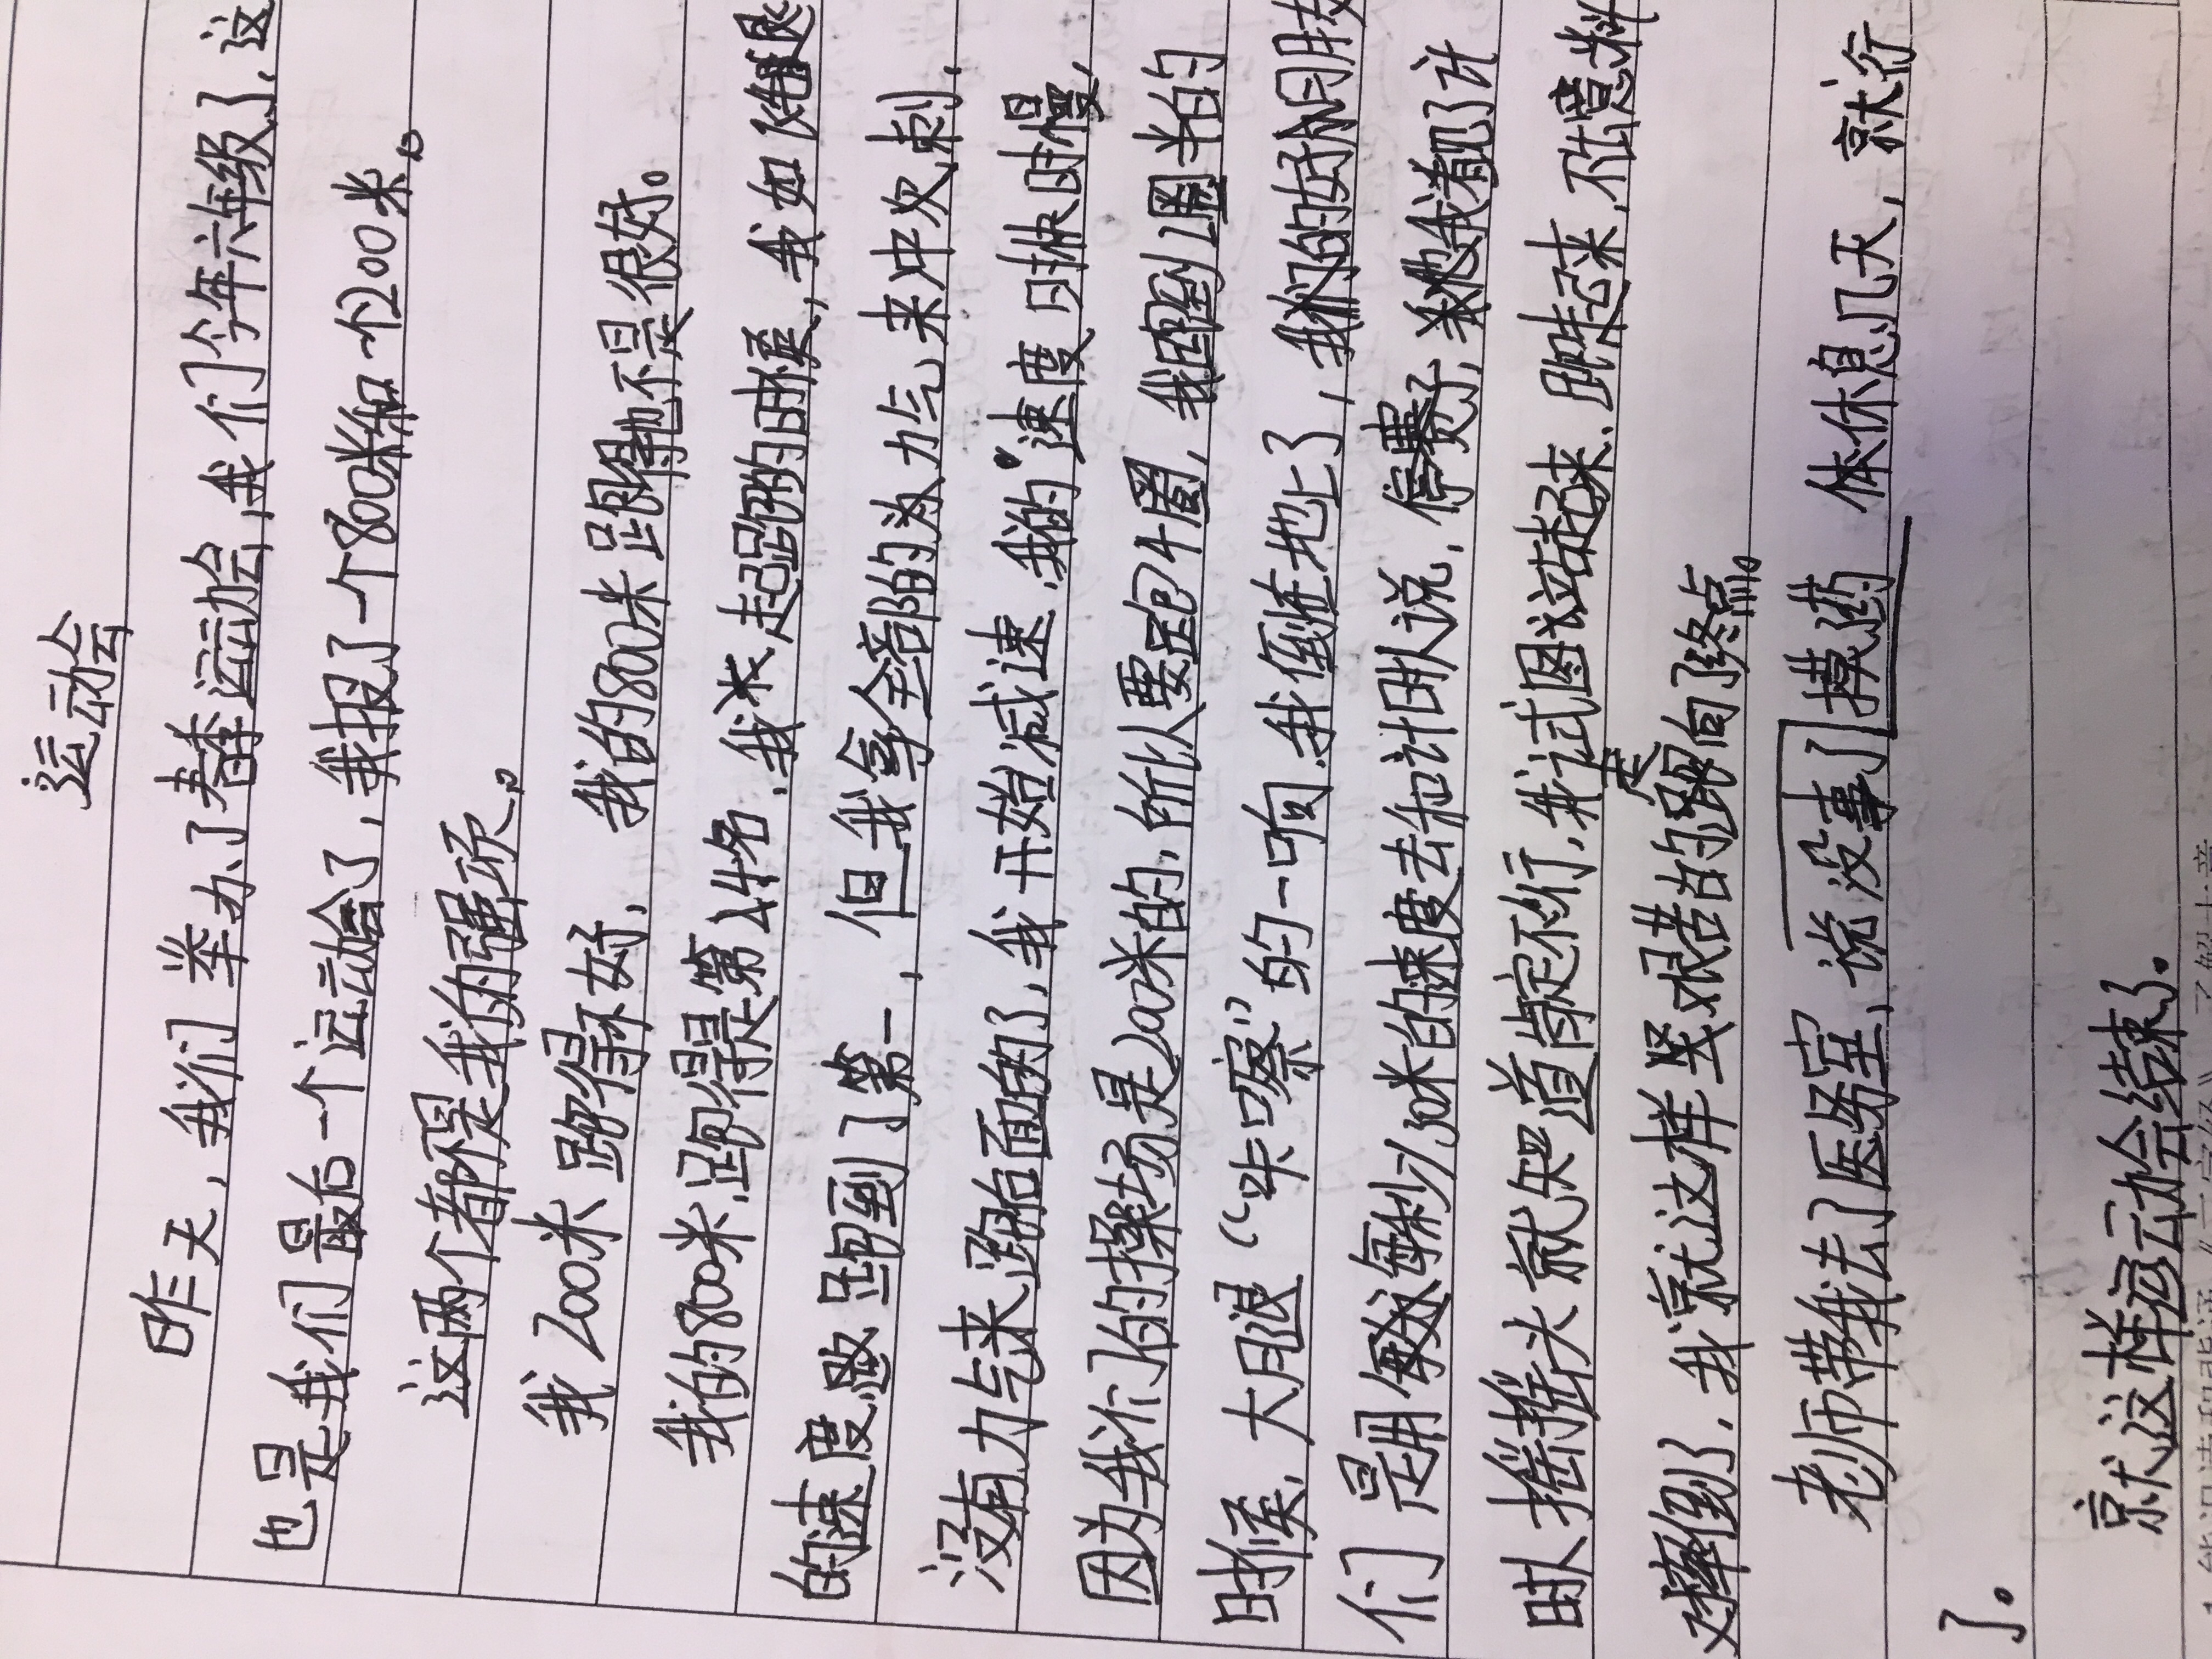 运动会
昨天，我们举办了春季运动会，我们今年六年级了，这
也是我们最后一个运动会了，我报了一个800米和一个200米。
这两个都不是我的强项。
我200米跑得不好，我的800米跑得也不是很好。
我的800米，跑得是第4名，我米起跑的时候，我如飞
的速度跑到了第一，但我拿全部的力气来冲刺，
没有力气来跑后面的了，我开始减速，我的速度时快时慢，
因为我们的操场是200米的，所以要跑4圈，我跑到1圈半的
时候，大腿“咔嚓”的一响，我倒在地上了，我们的好朋友
们是用每秒30米的速度去和计时人说，停赛了，我看了计
时人摇摇头就知道肯定不行，我试图站起来，跑起来，不出意料
摔倒了，我就这样坚艰苦的走向了终点。
老师带我去了医务室，说没事了摸药 体休息几天，就行
了。
就这样运动会结束了。